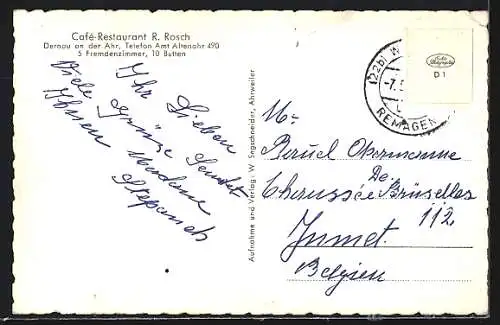 Café-Restaurant R. Rosch
Dernau an der Ahr, Telefon Amt Altenahr 490
5 Fremdenzimmer, 10 Betten
Ihr Lieben
Viele Grüsse Sendet
Ihnen Madame
Stepanek
Aufnahme und Verlag: W. Segschneider, Ahrweiler
(22b)
REMAGEN
D 1
M:
Obermanne
De
Chaussée Bruxelles
112
Jumet
Belgien